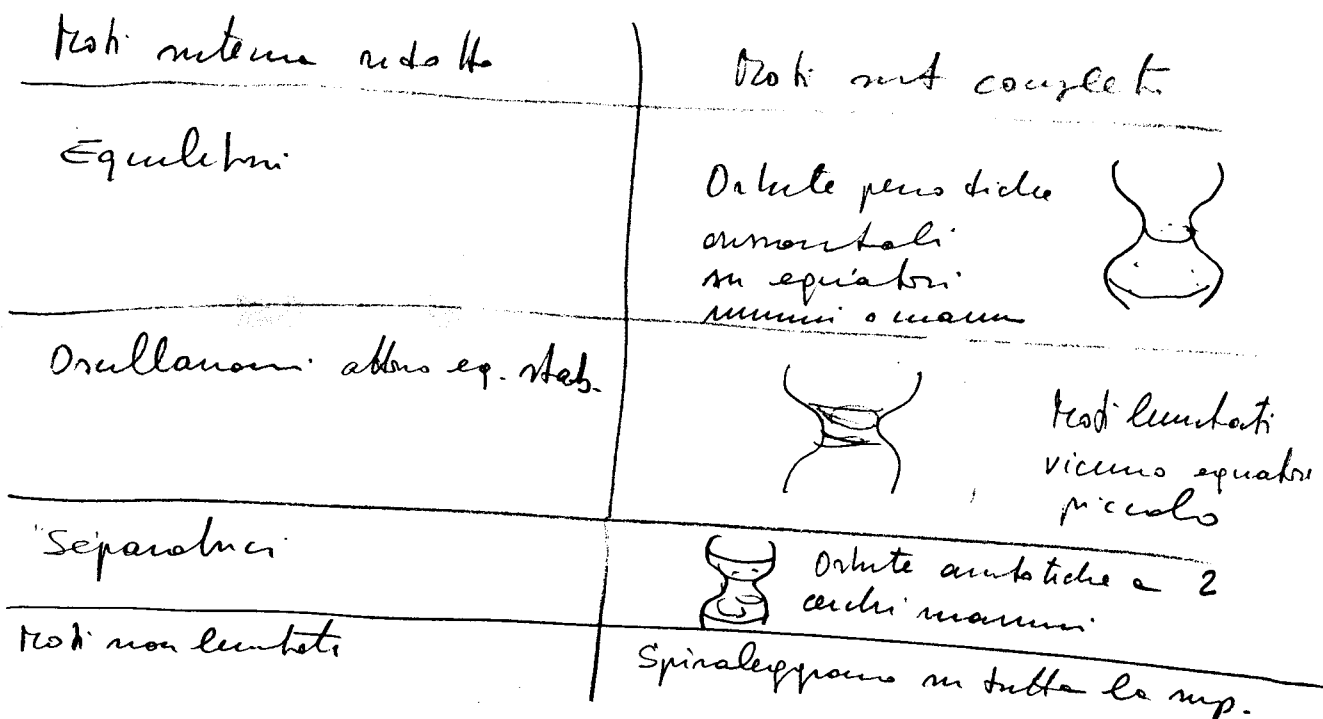 Moti sistema ridotto
Moti sist completo
Equilibri
Orbite periodiche
orizzontali
su equatori
minimi o massimi
Oscillazioni attorno eq. stab.
Moti limitati
vicino equatore
piccolo
Separatrici
Orbite asintotiche a 2
cerchi massimi
Moti non limitati
Spiraleggiano su tutta la sup.